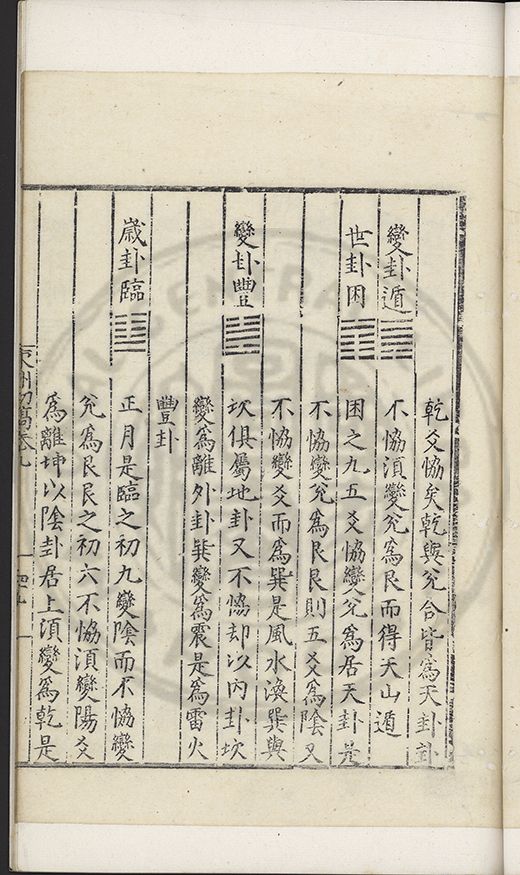 乾爻恊矣乾與兊合皆爲天卦卦
變卦遁
不恊須變兊爲艮而得天山遁
世卦困
困之九五爻恊變兊爲居天卦是
不恊變兊爲艮艮則五爻爲陰又
不恊變爻而爲巽是風水渙巽與
變卦豐
坎俱屬地卦又不恊却以內卦坎
變爲離外卦巽變爲震是爲雷火
豐卦
歲卦臨
正月是臨之初九變陰而不恊變
兊爲艮艮之初六不恊須變陽爻
爲離坤以陰卦居上須變爲乾是
初稾卷九